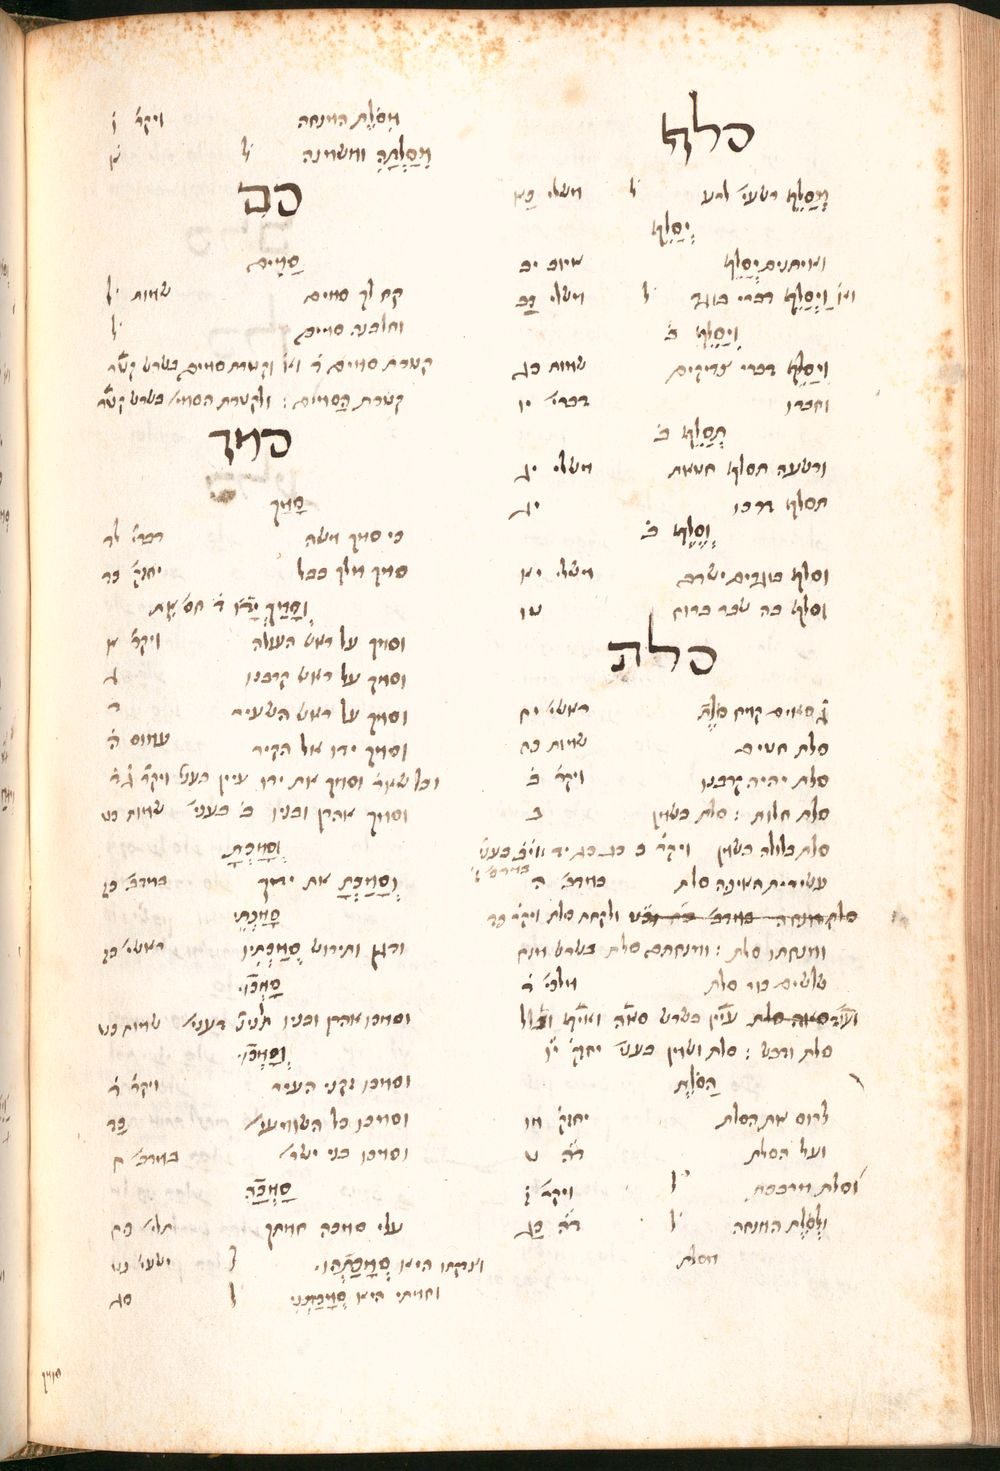 סלף
מְסַלֵּף רשעי׳ לרע ל׳ משלי כא
יְסַלֵּף
ואיתנים יְסַלֵּף איוב יב
וַיְסַלֵּף דברי בוגד ל׳ משלי כב
וִיסַלֵּף ב׳
וִיסַלֵּף דברי צדיקים שמות כג
וחברו דברי׳ יו
תְסַלֵּף ב׳
ורשעה תסלף חטאת משלי יג
תסלף דרכו יג
וְסֶלֶף ב׳
וסלף בוגדים ישדם משלי יא
וסלף בה שבר ברוח טו
סלת
ג׳ סאים קמח סֹלֶת ראשי׳ יח
סלת חטים שמות כט
סלת יהיה קרבנו ויקר׳ ב׳
סלת חלות : סלת בשמן ב
סלת בלולה בשמן ויקר׳
עשירית האיפה סלת במדב׳ ה
ולקחת סלת ויקר׳ כד
ומנחתו סלת : ומנחתם סלת בשרש מנח
שלשים כור סלת מלכי׳ ד׳
עיין בשרש סאה
סלת ודבש : סלת ושמן יחזק׳ יו
הַסֹּלֶת
לרוס את הסלת יחזק׳ מו
ועל הסלת דה ט
וסלת מרבכת ל׳ ויקר׳ ז
וּלְסֹלֶת המנחה ל׳ דה כג
מסלת
מִסֹּלֶת המנחה ויקר׳ ו
מִסָּלְתָּהּ ומשמנה ל׳
סם
סַמִּים
קח לך סמים שמות ל׳
וחלבנה סמים ל׳
קטרת סמים ד׳ וא׳ וקטרת סמים בשרש קטר
קטרת הַסַמים : ולקטרת הסמי׳ בשרש קטר
סמך
סָמַךְ
כי סמך משה דבר׳ לד
סמך מלך בבל יחזק׳ כד
וְסָמַךְ יָדוֹ
וסמך על ראש העולה ויקר׳ א
וסמך על ראש קרבנו ג
וסמך על ראש השעיר ד
וסמך ידו אל הקיר עמוס ה׳
וכל שאר׳ וסמך את ידו עיין בעני׳ ויקר׳ ג׳ ד׳
וסמך אהרן ובניו ב׳ בעני׳ שמות כט
וְסָמַכְתָּ
וְסָמַכְתָּ את ידיך במדב׳ כז
סְמַכְתִּי
ודגן ותירוש סְמַכְתִּיו ראשי׳ כז
סָמְכוּ
וסמכו אהרן ובניו שמות כט
וְסָמְכוּ
וסמכו זקני העיר ויקר׳ ד׳
וסמכו כל השומעי׳ כד
וסמכו בני ישר׳ במדב׳ ח
סָמְכָה
עלי סמכה חמתך תלי׳ פח
וצדקתו היא סְמָכָתְהוּ ל׳ ישעי׳ נט
וחמתי היא סְמָכָתְנִי ל׳ סג